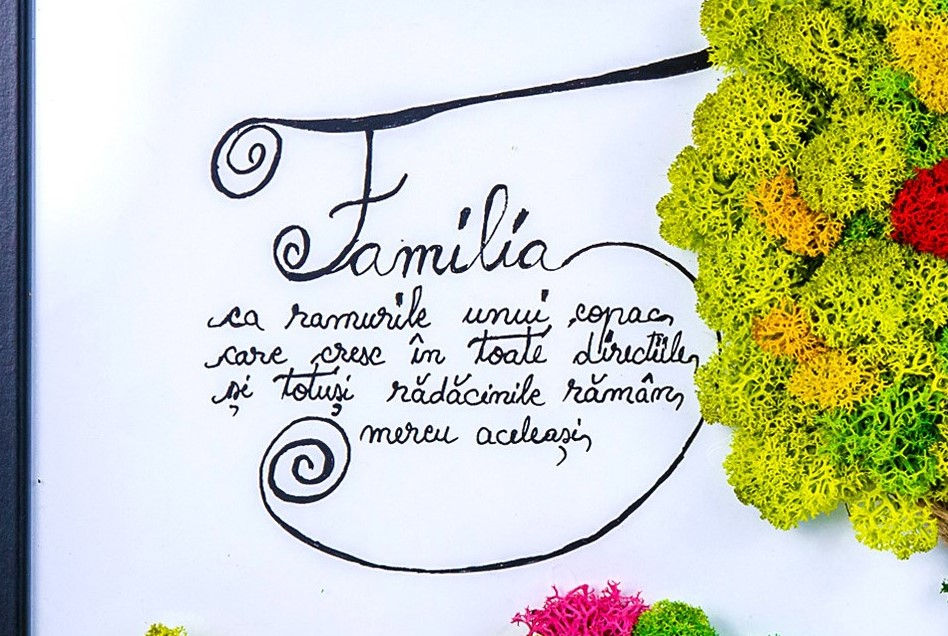 Familia
ca ramurile unui copac
care cresc în toate direcțiile
și totuși rădăcinile rămân
mereu aceleași